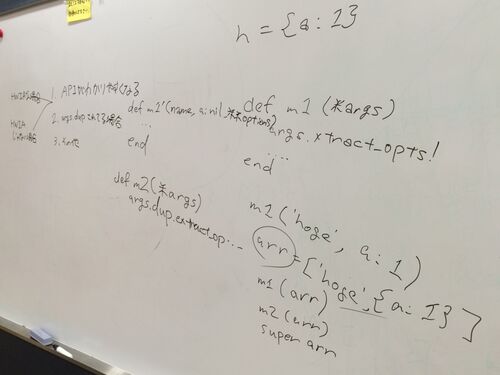 h = {a: 1}
HWIAな場合
HWIA
じゃない場合
1. APIがわかりにくくなる
2. args.dup されてる場合
3. その他
def m1'(name, a: nil, **options)
...
end
def m1 (*args)
args.xtract_opts!
...
end
def m2 (*args)
args.dup.extract_op...
m2('hoge', a: 1)
arr = ['hoge', {a: 1}]
m1 (arr)
m2 (arr)
super arr